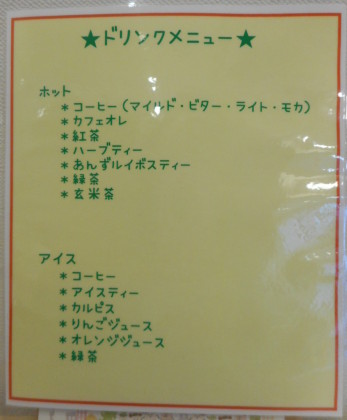 ★ドリンクメニュー★
ホット
＊コーヒー（マイルド・ビター・ライト・モカ）
＊カフェオレ
＊紅茶
＊ハーブティー
＊あんずルイボスティー
＊緑茶
＊玄米茶
アイス
＊コーヒー
＊アイスティー
＊カルピス
＊りんごジュース
＊オレンジジュース
＊緑茶